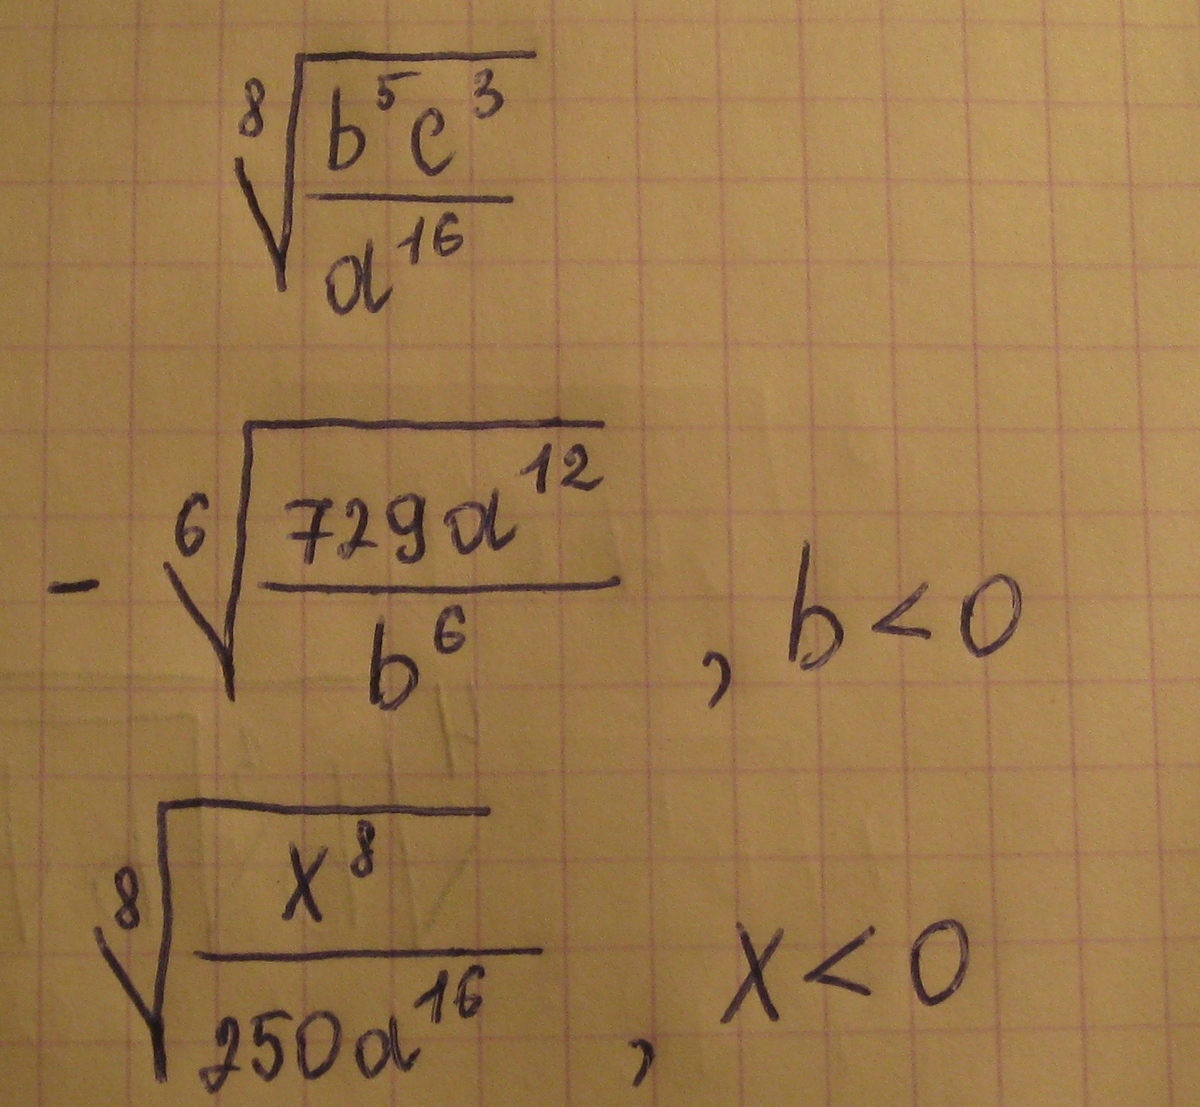 ⁸√(b⁵c³/a¹⁶)
-⁶√(729a¹²/b⁶) , b<0
⁸√(x⁸/250a¹⁶) , x<0